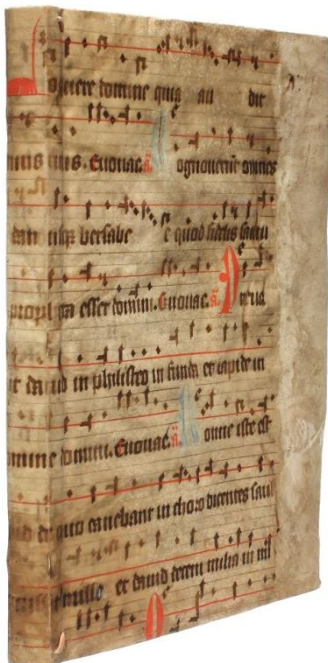 Loquere domine quia au dit
tuus. Euouae. a ognouerūt omnes
dan usqȝ bersabe e quod fidelis samu
propħa esset domini. Euouae. a Preua
dauid in philisteo in funda et lapide in
mine domini. Euouae. a onne iste est
de quo canebant in choro dicentes saul
mille et dauid decem milia in mil